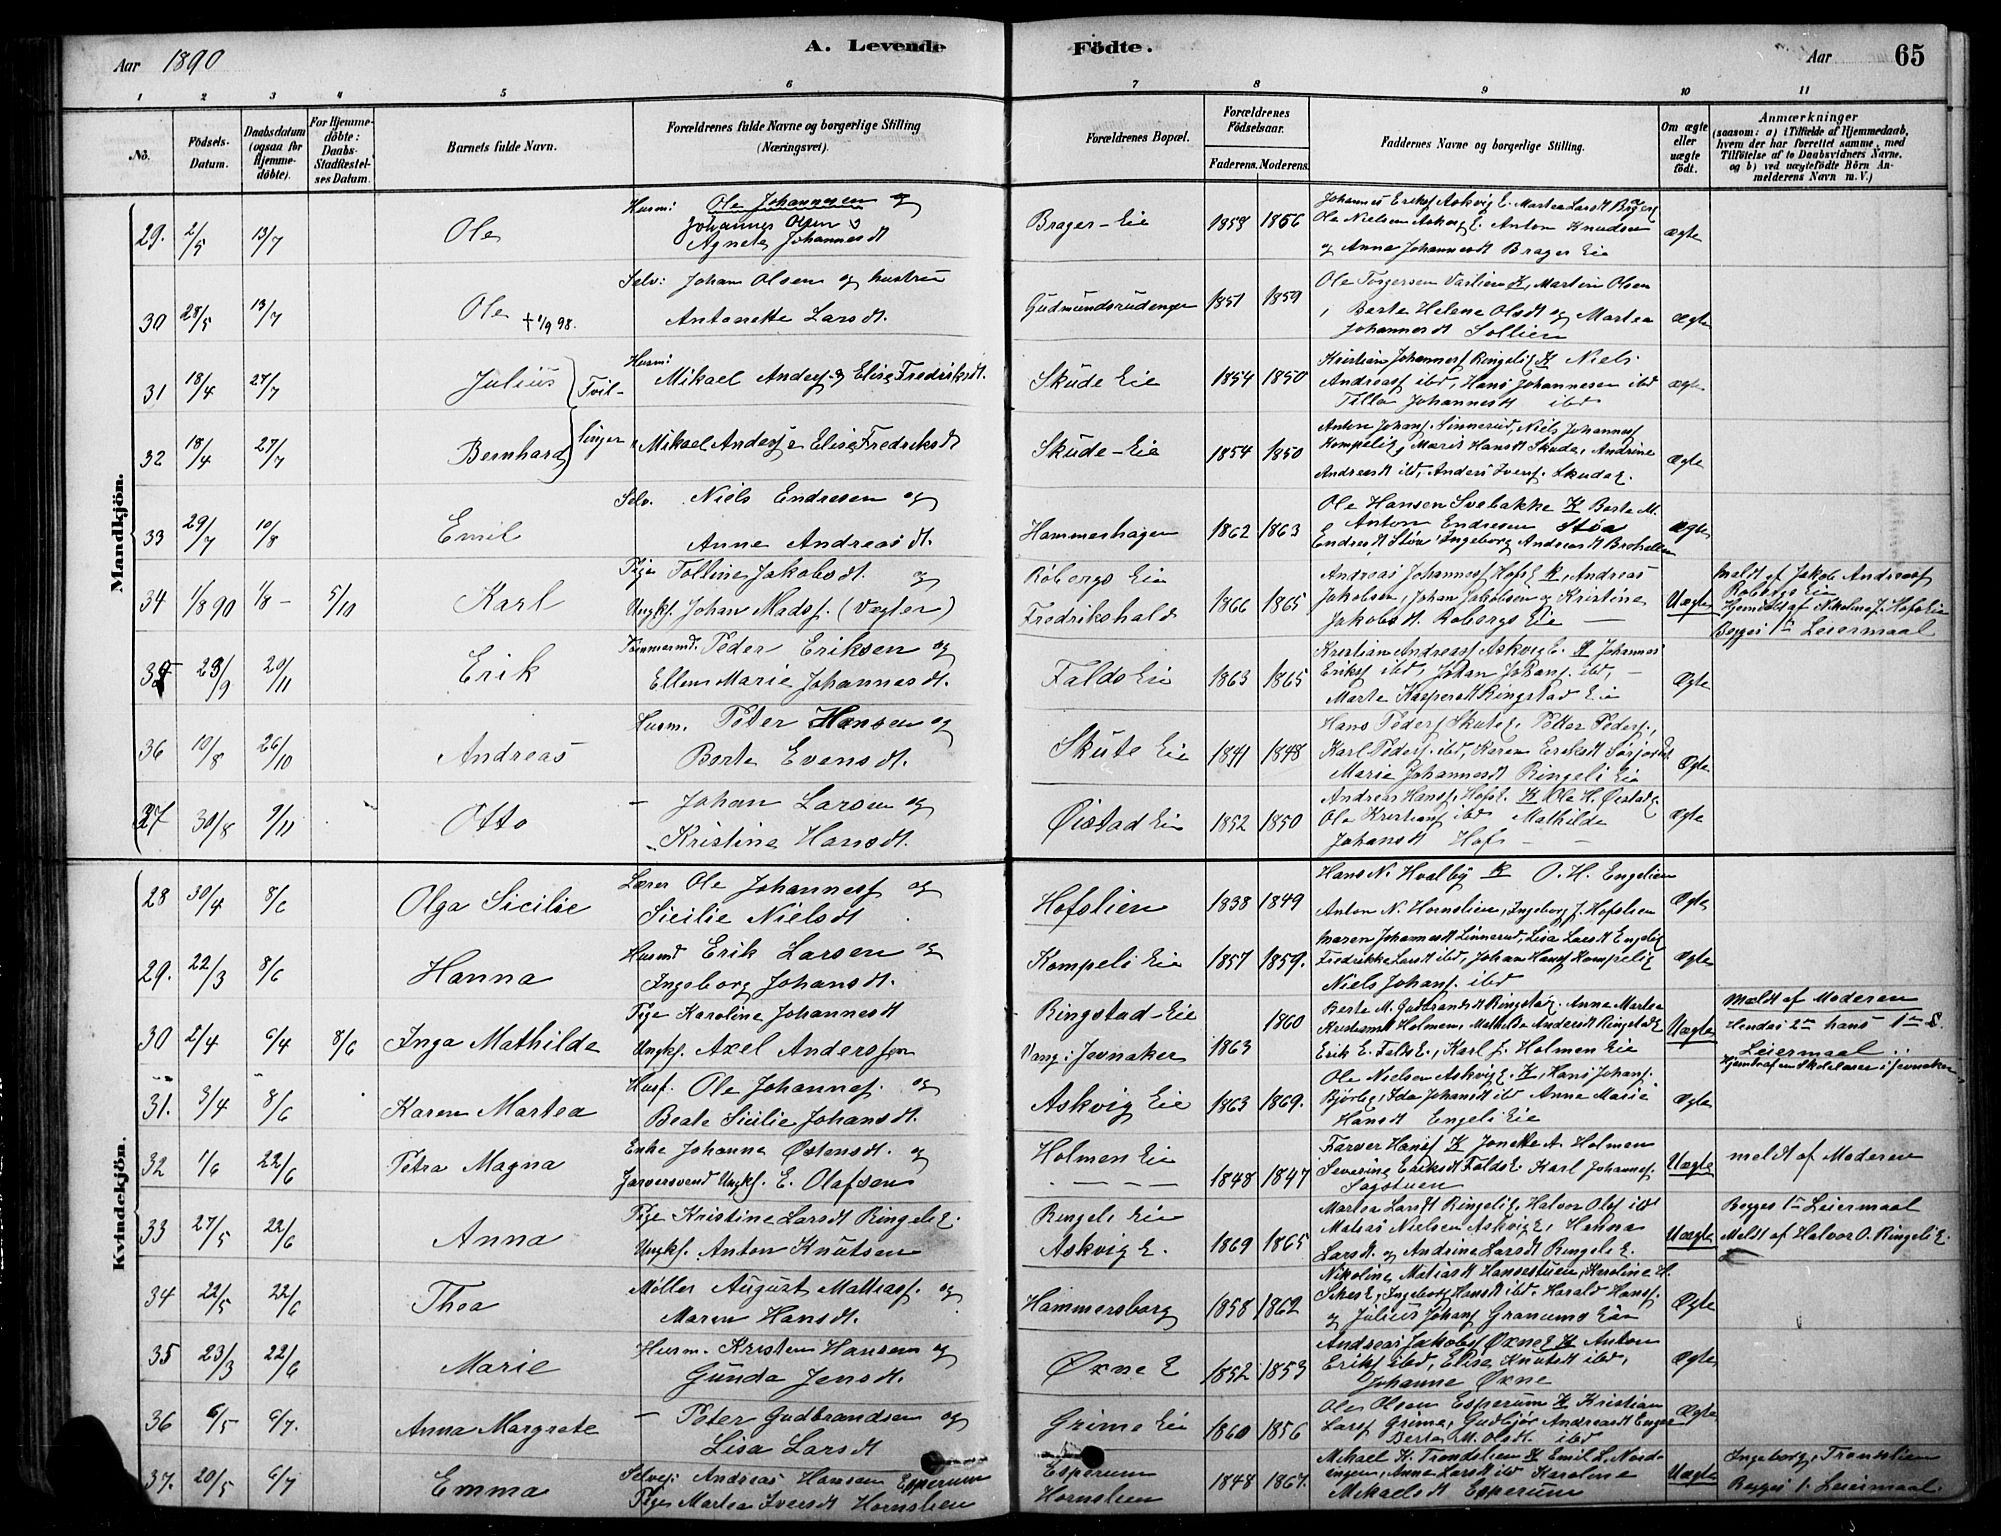 Aar 1890
A. Levende Födte.
Aar 65
1 2 3 4 5 6 7 8 9 10 11
No.
Födsels-Datum.
Daabsdatum (ogsaa for Hjemme-döbte).
For Hjemme-döbte: Daabs-Stadfæstel-ses Datum.
Barnets fulde Navn.
Forældrenes fulde Navne og borgerlige Stilling (Næringsvei).
Forældrenes Bopæl.
Forældrenes Födselsaar.
Faderens. Moderens.
Faddernes Navne og borgerlige Stilling.
Om ægte eller uægte födt.
Anmærkninger
(saasom: a) i Tilfælde af Hjemmedaab, hvem der har forrettet samme, med Tilföielse af to Daabsvidners Navne, og b) ved uægtefödte Börn An-melderens Navn m. V.)
Mandkjön.
29. 2/5 13/7 Ole Husm: Ole Johannesen og
Johannes Olsen
Agnete Johannesdt
Brager-Eie 1859 1856 Johannes Eriks. Askvig E. Martea Larsdt Brager
Ole Nielsen Askvig E. Anton Knudsen
og Anna Johannesdt Brager Eie
ægte
30 28/5 13/7 Ole † 1/9 98. Selv: Johan Olsen og hustru
Antonette Larsdt.
Gudmundsrudengen 1851 1859 Ole Torgersen Vaslien K, Martin Olsen
Berte Helene Olsdt og Martea
Johannesdt Sollien
ægte
31 18/4 27/7 Julius Tvil- Husm: Mikael Anders. og Elise Fredriksdt.
Skude Eie 1854 1850 Kristian Johannes. Ringeli E K Niels
Andreas. ibd, Hans Johannesen ibd
Johannesdt ibd
ægte
32 18/4 27/7 Bernhard linger Mikael Anders. & Elise Fredriksdt
Skude-Eie 1854 1850 Anton Johans. Linnerud, Niels Johannes.
Kompeli E, Marit Hansdt Skude, Andrine
Andreasdt ibd, Anders Ivers. Skude E.
ægte
33 29/7 10/8 Emil Selv. Niels Endresen og
Anne Andreasdt.
Hammershagen 1862 1863 Ole Hansen Svebakke K Berte M.
Anton Endresen Støa
Endresdt Støa Ingeborg Andreasdt
ægte
34 1/8 90 1/8 - 5/10 Karl Pige Tolline Jakobsdt. og
Ungkf. Johan Mads. (Vægter)
Röbergs Eie
Fredrikshald 1866 1865 Andreas Johannes. Hofs E K, Andreas
Jakobsen, Johan Jakobsen og Kristine
Jakobsdt. Robergs Eie
Uægte meldt af Jakob Andreas.
Robergs Eie
Hjemdøbt af Nikoline J. Hofslie
Begges 1ste Leiermaal
35 23/9 20/11 Erik Tømmermd. Peder Eriksen og
Ellen Marie Johannesdt.
Falds Eie 1863 1865 Kristian Andreas. Askvig E. K Johannes
Eriks. ibd, Johan Johans. ibd,
Marte Kaspersdt Ringstad Eie
Ægte
36 10/8 26/10 Andreas Husm. Peter Hansen og
Berte Evensdt.
Skute Eie 1841 1848 Hans Peders. Skute E. Petter Peders.,
Karl Peders. ibd, Karen
Marie Johannesdt Ringeli Eie
Ægte
37 30/8 9/11 Otto - Johan Larsen og
Kristine Hansdt.
Øistad Eie 1852 1850 Andreas Hans. Hofs E. K Ole H. Øistad E.
Ole Kristians. ibd Mathilde
Johansdt Hofs
Ægte
Kvindekjön.
28 30/4 8/6 Olga Sicilie Lærer Ole Johannes. og
Sicilie Nielsdt
Hofslien 1838 1849 Hans N. Hvalby K O. H. Engelien
Anton N. Hornslien, Ingeborg J. Hofslien
Ægte
29. 22/3 8/6 Hanna Husmd Erik Larsen og
Ingeborg Johansdt.
Kompeli Eie 1857 1859. Maren Johannesdt Linnerud, Lisa Larsdt Engeli E
Fredrikke Larsdt ibd, Johan Hans. Kompeli E
Niels Johans. ibd
Ægte
30 2/4 6/4 8/6 Inga Mathilde Pige Karoline Johannesdt
Ungkf. Axel Anderssen
Ringstad-Eie
Vang i Jevnaker 1863 1860 Berte M. Gudbrandsdt Ringstad E. Anne Martea
Kristiansdt Holmen, Mathilde Andersdt Ringstad E
Erik E. Falds E., Karl J. Holmen Eie
Uægte Meldt af Moderen
Hendes 2det hans 1ste
Leiermaal
Hjemdøbt af en Skolelærer i Jevnaker
31. 3/4 8/6 Karen Martea Husf. Ole Johannes. og
Beate Sicilie Johansdt.
Askvig Eie 1863 1869. Ole Nielsen Askvig E. K, Hans Johans.
Ida Johansdt ibd Anne Marie
Hansdt Engeli Eie
Ægte
32 1/6 22/6 Petra Magna Enke Johanna Østensdt. og
Farversvend Ungkf. E. Olafsen
Holmen Eie 1848 1847 Farver Hans. K Jonette A. Holmen
Severine Eriksdt Falds E. Karl Johannes.
Sagstuen
Uægte meldt af Moderen
33 27/5 22/6 Anna Pige Kristine Larsdt Ringeli E.
Ungkf. Anton Knutsen
Ringeli Eie
Askvig E. 1869 1865 Martea Larsdt Ringeli E, Halvor Ols. ibd
Matias Nielsen Askvig E, Hanna
Larsdt. og Andrine Larsdt Ringeli E.
Uægte Begges 1ste Leiermaal
Meldt af Halvor O. Ringeli E.
34 22/5 22/6 Thea Møller August Mattias. og
Maren Hansdt.
Hammersborg 1858 1862 Nikoline Matiasdt Hansestuen, Karoline H.
Ingeborg Hansdt ibd. Harald Hans.
og Julius Johans. Granums Eie
Ægte
35 23/3 22/6 Marie Husm. Kristen Hansen og
Gunda Jensdt.
Øxne E 1852 1853 Andreas Jakobs. Øxne E K Anton
Eriks. ibd, Elise Knutsdt ibd,
Johanne Øxne
Ægte
36 6/5 6/7. Anna Margrete - Peter Gudbrandsen og
Lisa Larsdt
Grime Eie 1860 1856 Ole Olsen Esperum K Kristian
Lars. Grime, Gudbjør Andreasdt Enger
Berte M. Olsdt. ibd
Ægte
37. 20/5 6/7 Emma Selvei: Andreas Hansen Esperum
Pige Martea Iversdt Hornslien
Esperum
Hornslien 1848 1867. Mikael H. Trondslien K Emil L. Nord-
engen, Anne Larsdt ibd Karoline
Mikaelsdt Esperum
Uægte Ingeborg Trondslien
Begges 1. Leiermaal.